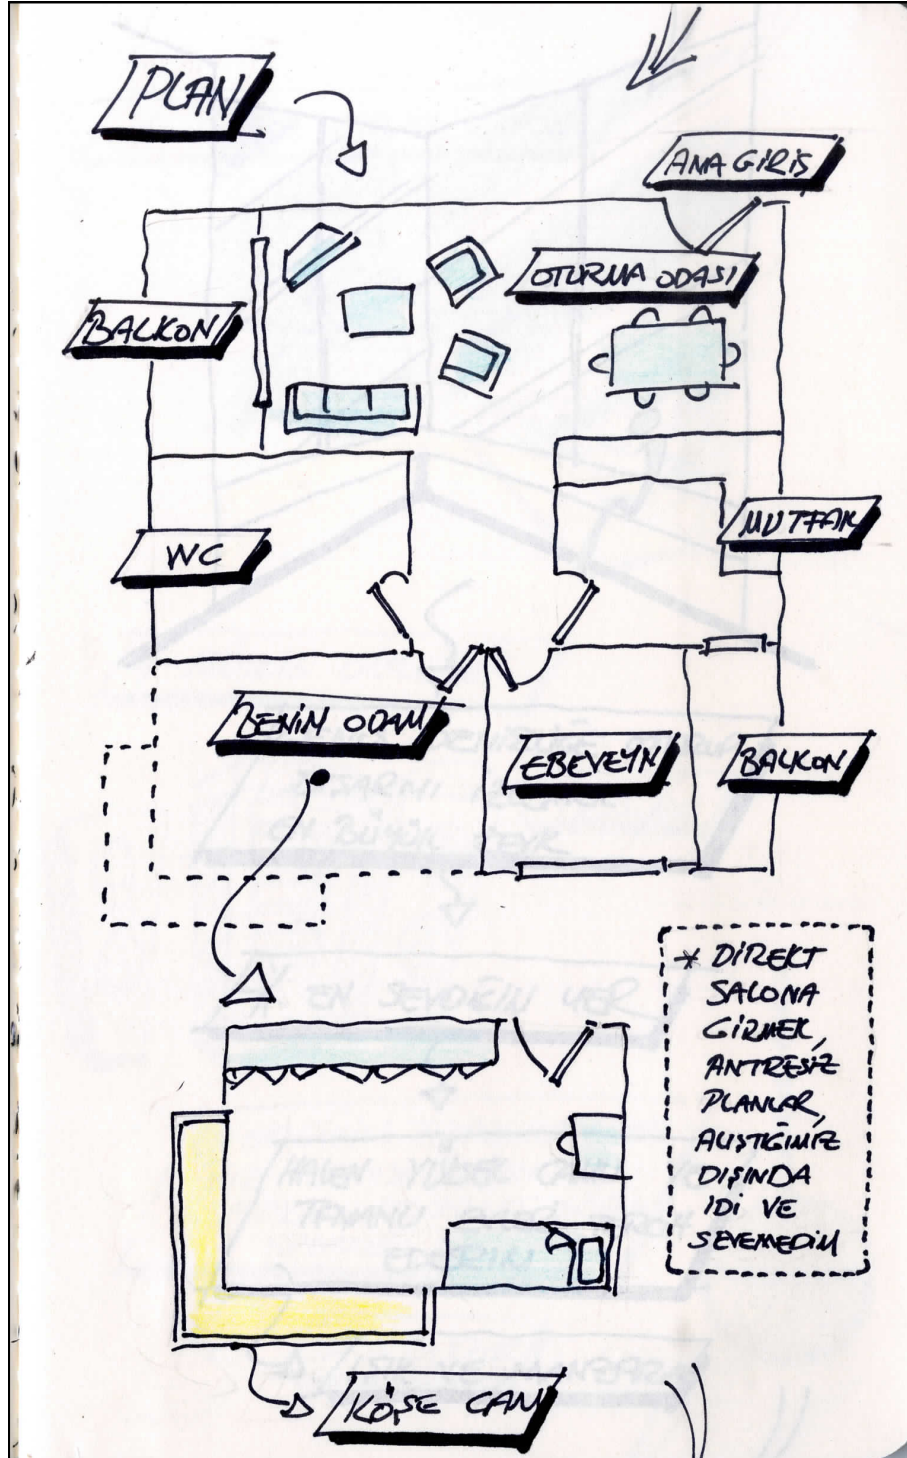 PLAN
ANA GİRİŞ
OTURMA ODASI
BALKON
MUTFAK
WC
BENİM ODAM
EBEVEYN
BALKON
* DİREKT
SALONA
GİRMEK,
ANTRESİZ
PLANLAR,
ALIŞTIĞIMIZ
DIŞINDA
İDİ VE
SEVEMEDİM
KÖŞE CAM